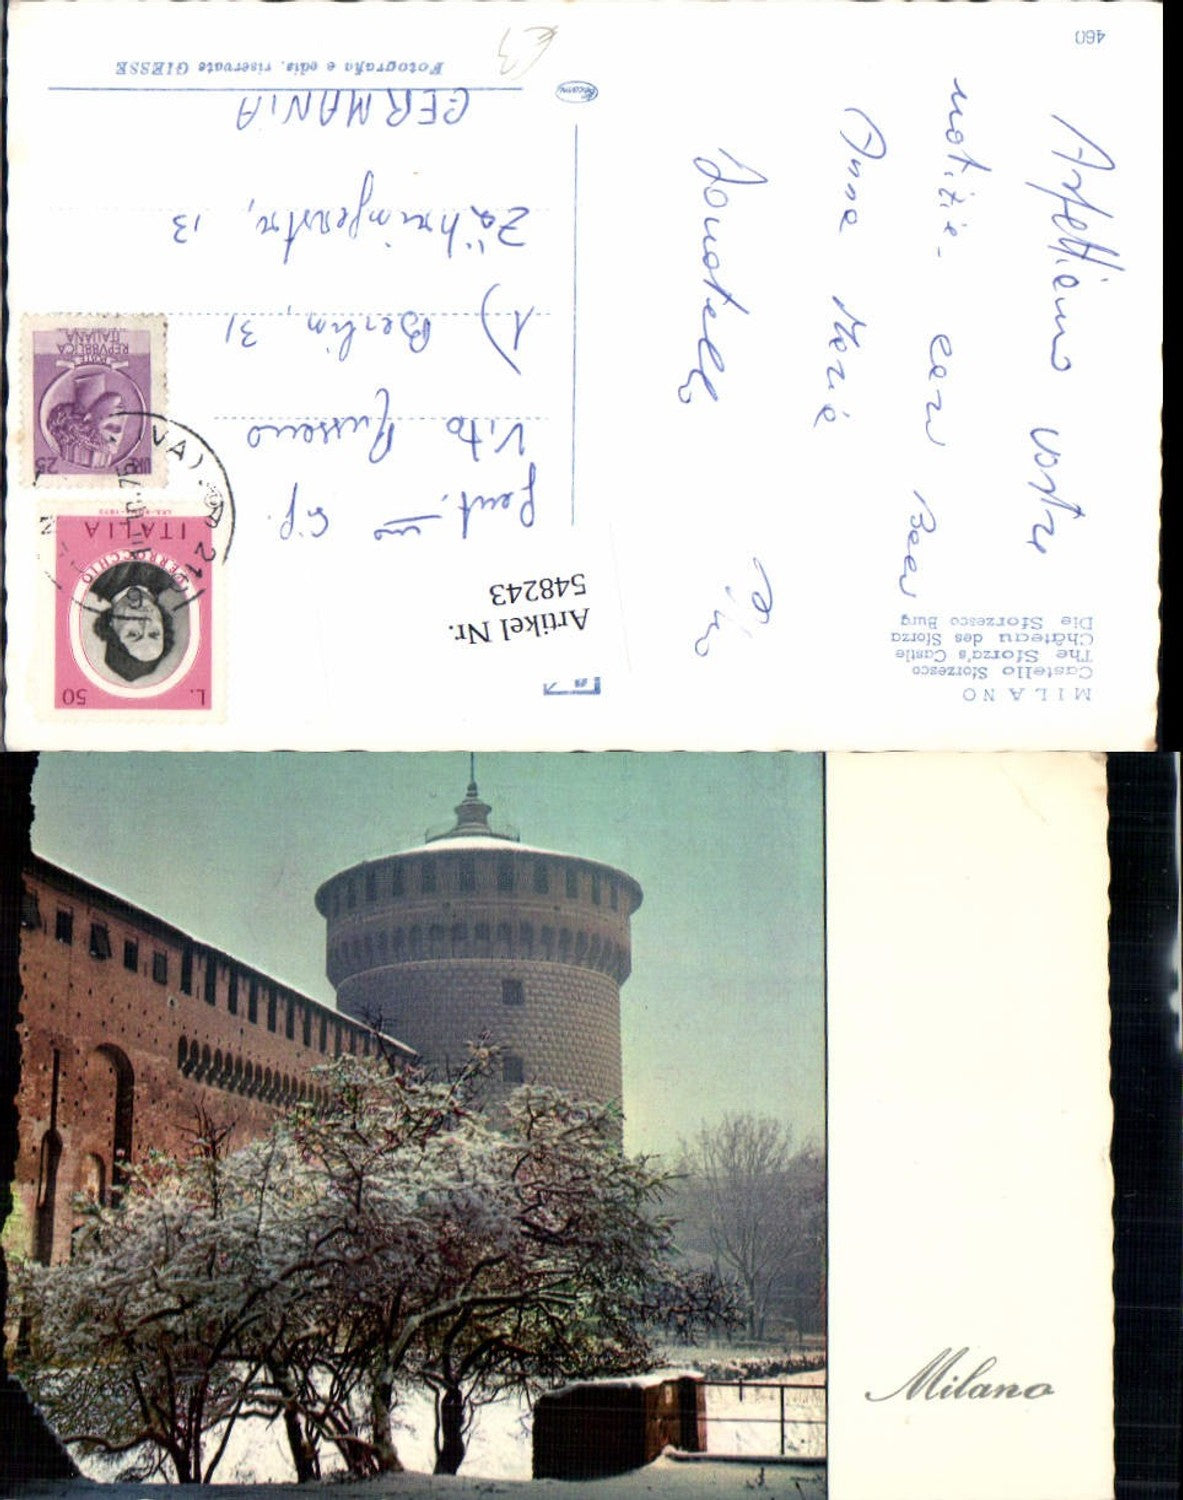 MILANO
Castello Sforzesco
The Sforza's Castle
Château des Sforza
Die Sforzesco Burg
460
Aspettiamo vostre
notizie. cari Baci
Anna Maria
Artikel Nr.
548243
Gent.mo Sig.
Vito
1) Berlin, 31
Zähringerstr, 13
GERMANIA
Fotografia e ediz. riservate GIESSE
L. 50
VERROCCHIO
ITALIA
LIRE 25
POSTE
REPVBBLICA
ITALIANA
Milano